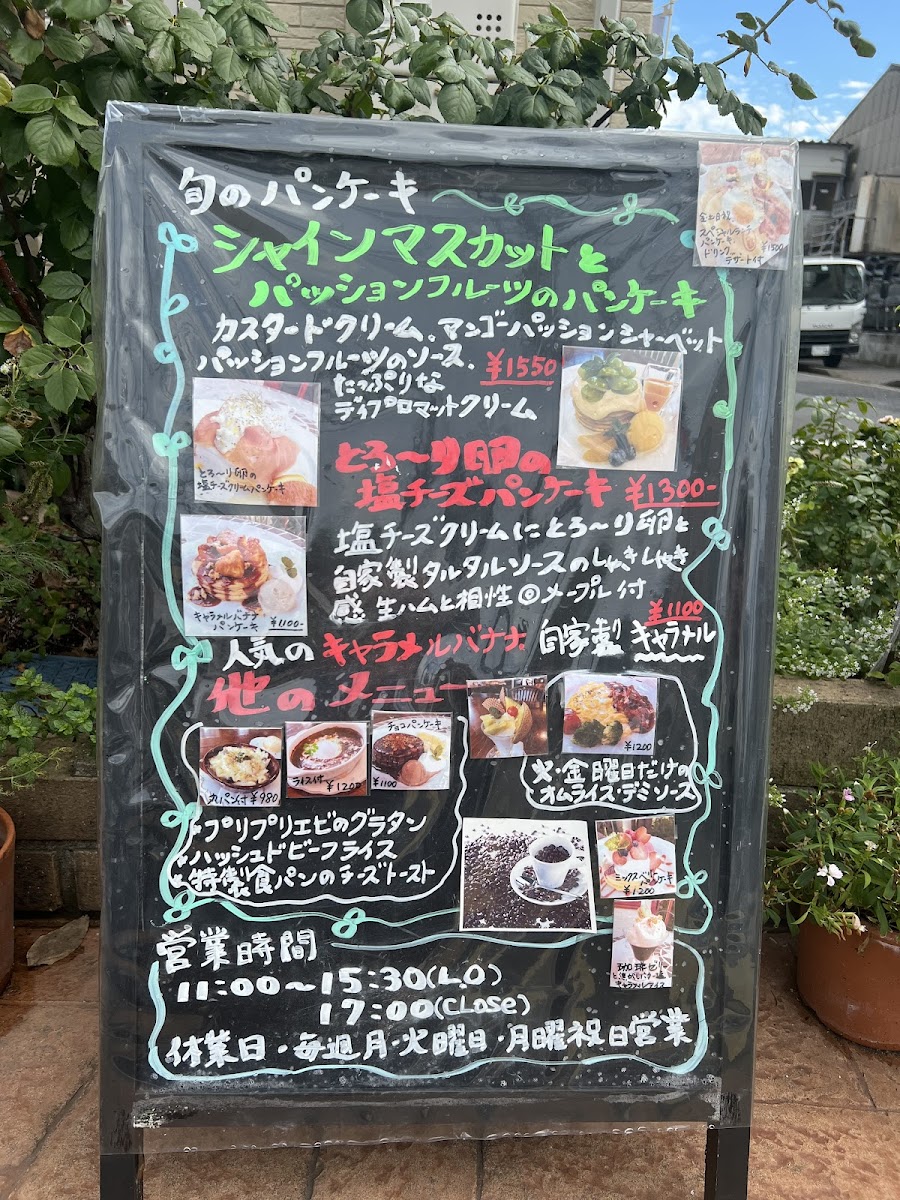 旬のパンケーキ
シャインマスカットと
パッションフルーツのパンケーキ
カスタードクリーム。マンゴーパッションシャーベット
パッションフルーツのソース、
¥1550
たっぷりな
ディプロマットクリーム
金土日祝
スペシャルランチ
パンケーキ
ドリンク
デザート付
¥1500
とろ〜り卵の
塩チーズクリームパンケーキ
とろ〜り卵の
塩チーズパンケーキ ¥1300-
塩チーズクリームにとろ〜り卵と
自家製タルタルソースのしゃきしゃき
感 生ハムと相性◎メープル付
キャラメルバナナ
パンケーキ ¥1100-
¥1100
人気のキャラメルバナナ 自家製キャラメル
他のメニュー
丸パン付 ¥980
ライス付 ¥1200
チョコパンケーキ
¥1100
¥1200
火・金曜日だけの
オムライス・デミソース
プリプリエビのグラタン
ハッシュドビーフライス
特製食パンのチーズトースト
ミックスベリー
パンケーキ
¥1200
珈琲ゼリー
営業時間
11:00〜15:30(L.O)
17:00(CLose)
休業日・毎週月・火曜日・月曜祝日営業